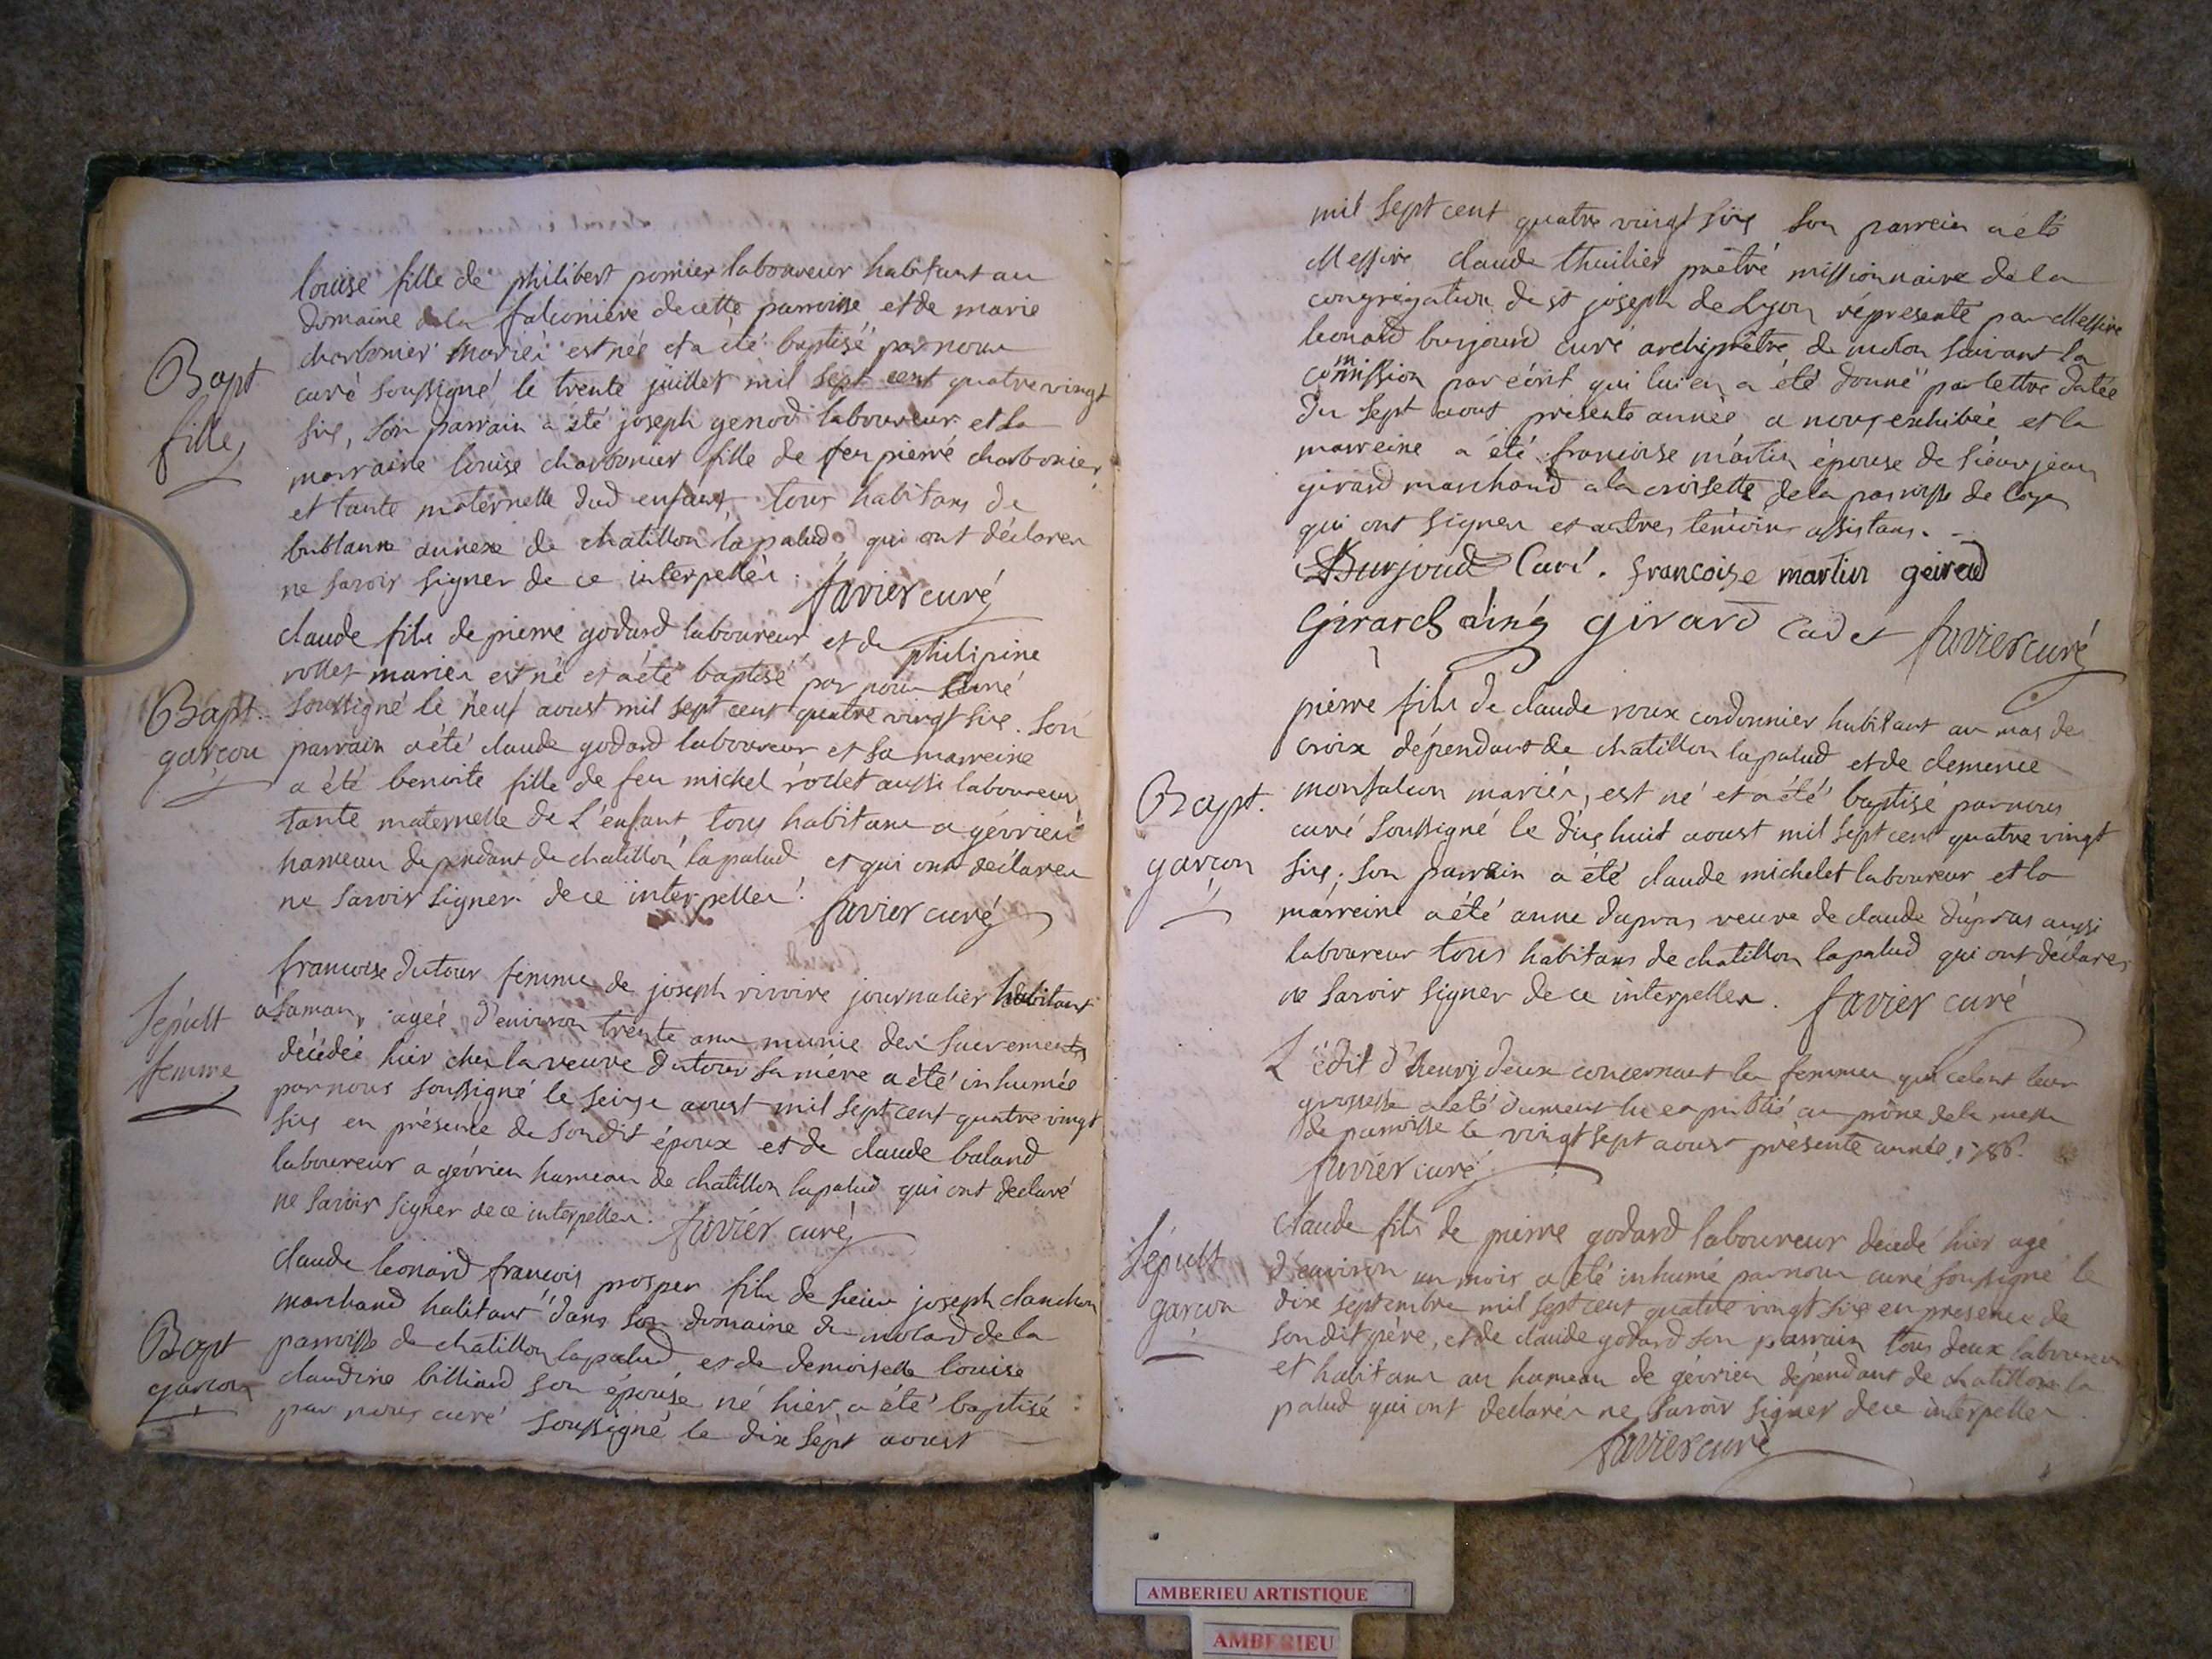 louise fille de philibert pomier laboureur habitant au
domaine de la falconière de cette parroisse et de marie
charbonier mariés est née et a été baptisé par nous
Bapt
fille
curé soussigné le trente juillet mil sept cent quatre vingt
six, son parrain a été joseph genod laboureur et la
marraine louise charbonier fille de feu pierre charbonier
et tante maternelle dud enfant, tous habitans de
bublanne annexe de chatillon lapalud qui ont déclarer
ne savoir signer de ce interpellés. favier curé
claude fils de pierre godard laboureur et de philipine
rollet mariés est né et a été baptisé par nous curé
Bapt.
garçon
soussigné le neuf aoust mil sept cent quatre vingt six. son
parrain a été claude godard laboureur et sa marreine
a été benoite fille de feu michel rollet aussi laboureur
tante maternelle de L'enfant, tous habitans a gévrieu
hameau dependant de chatillon lapalud et qui ont déclarer
ne savoir signer de ce interpeller. favier curé
francoise dutour femme de joseph rivoire journalier habitant
Sépult
femme
a laman, agée d'environ trente ans munie des sacrements
décédée hier chez la veuve dutour sa mére a été inhumée
par nous soussigné le seize aoust mil sept cent quatre vingt
six en présence de sondit époux et de claude baland
laboureur a gévrieu hameau de chatillon lapalud qui ont declaré
ne savoir signer de ce interpeller. favier curé
claude leonard françois prosper fils de sieur joseph clanchon
marchand habitant dans son domaine du molard de la
Bapt
garcon
parroisse de chatillon lapalud et de demoiselle louise
claudine billiard son épouse né hier a été baptisé
par nous curé soussigné le dix sept aoust
mil sept cent quatre vingt six son parrein a été
Messire claude thuilier prêtre missionnaire de la
congrégation de st joseph de Lyon réprésenté par Messire
leonard burjoud curé archiprêtre de molon suivant la
commission par écrit qui lui en a été donné par lettre datée
du sept aout présente année a nous exhibée et la
marreine a été francoise martin épouse de sieur jean
girard marchand a la croisette de la parroisse de loye
qui ont signer et autres témoins assistans.
Burjoud Curé. francoise martin geirad
Girard ainé girard Cadet favier curé
pierre fils de claude roux cordonnier habitant au mas de
croix dépendant de chatillon lapalud et de clemence
Bapt.
garcon
monfalcon mariés, est né et a été baptisé par nous
curé soussigné le dix huit aoust mil sept cent quatre vingt
six; son parrain a été claude michelet laboureur et la
marreine a été anne dupras veuve de claude dupras aussi
laboureur tous habitans de chatillon lapalud qui ont déclarer
ne savoir signer de ce interpeller. favier curé
L'édit d'henry deux concernant les femmes qui celent leur
grossesse a été dument lu et publié au prône de la messe
de parroisse le vingt sept aoust présente année 1786.
favier curé
Sépult
garcon
claude fils de pierre godard laboureur décédé hier agé
d'environ un mois a été inhumé par nous curé soussigné le
dix septembre mil sept cent quatre vingt six en présence de
sondit père, et de claude godard son parrain tous deux laboureur
et habitans au hameau de gévrieu dépendant de chatillon la
palud qui ont declarés ne savoir signer de ce interpeller.
favier curé
AMBERIEU ARTISTIQUE
AMBERIEU